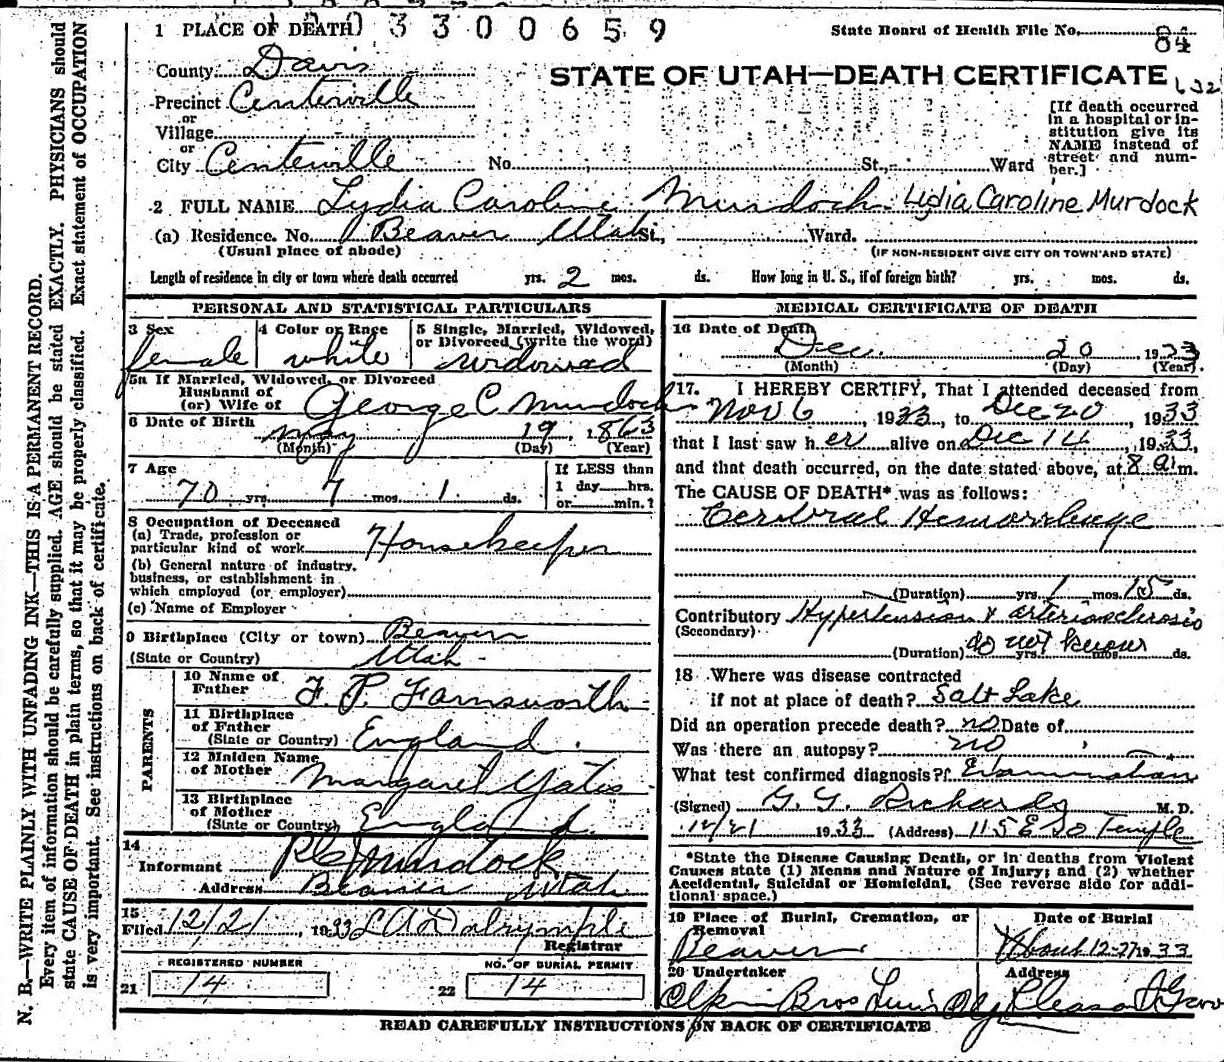 1 PLACE OF DEATH
3300659
State Board of Health File No. 84
County Davis
STATE OF UTAH—DEATH CERTIFICATE
Precinct Centerville
or
Village
or
City Centeville No. St., Ward
[If death occurred
in a hospital or in-
stitution give its
NAME instead of
street and num-
ber.]
2 FULL NAME Lydia Caroline Murdock Lydia Caroline Murdock
(a) Residence. No. Beaver Utah St., Ward.
(Usual place of abode) (IF NON-RESIDENT GIVE CITY OR TOWN AND STATE)
Length of residence in city or town where death occurred yrs. 2 mos. ds. How long in U. S., if of foreign birth? yrs. mos. ds.
PERSONAL AND STATISTICAL PARTICULARS
3 Sex female
4 Color or Race white
5 Single, Married, Widowed,
or Divorced (write the word)
widowed
5a If Married, Widowed, or Divorced
Husband of
(or) Wife of George C. Murdock
6 Date of Birth may 19 1863
(Month) (Day) (Year)
7 Age
70 yrs. 7 mos. 1 ds.
If LESS than
1 day hrs.
or min.?
8 Occupation of Deceased
(a) Trade, profession or
particular kind of work Housekeeper
(b) General nature of industry,
business, or establishment in
which employed (or employer)
(c) Name of Employer
9 Birthplace (City or town) Beaver
(State or Country) Utah
PARENTS
10 Name of
Father F. P. Farnsworth
11 Birthplace
of Father
(State or Country) England
12 Maiden Name
of Mother Margaret Yates
13 Birthplace
of Mother
(State or Country) England
14
Informant Murdock
Address Beaver Utah
15
Filed 12/21, 1933 L A Dalrymple
Registrar
REGISTERED NUMBER NO. OF BURIAL PERMIT
21 14 22 14
MEDICAL CERTIFICATE OF DEATH
16 Date of Death
Dec. 20 1933
(Month) (Day) (Year)
17. I HEREBY CERTIFY, That I attended deceased from
Nov 6 1933, to Dec 20 1933
that I last saw her alive on Dec 14, 1933,
and that death occurred, on the date stated above, at 8 a m.
The CAUSE OF DEATH* was as follows:
Cerebral Hemorrhage
(Duration) yrs. 1 mos. 15 ds.
Contributory Hypertension & arteriosclerosis
(Secondary)
(Duration) do not know yrs. mos. ds.
18 Where was disease contracted
if not at place of death? Salt Lake
Did an operation precede death? no Date of
Was there an autopsy? no
What test confirmed diagnosis? Examination
(Signed) G. G. Richards M. D.
12/21 1933 (Address) 115 E So Temple
*State the Disease Causing Death, or in deaths from Violent
Causes state (1) Means and Nature of Injury; and (2) whether
Accidental, Suicidal or Homicidal. (See reverse side for addi-
tional space.)
19 Place of Burial, Cremation, or
Removal
Beaver
Date of Burial
About 12-27 1933
20 Undertaker Address
Bros Pleasant Grove
READ CAREFULLY INSTRUCTIONS ON BACK OF CERTIFICATE
N. B.—WRITE PLAINLY WITH UNFADING INK—THIS IS A PERMANENT RECORD.
Every item of information should be carefully supplied. AGE should be stated EXACTLY. PHYSICIANS should
state CAUSE OF DEATH in plain terms, so that it may be properly classified. Exact statement of OCCUPATION
is very important. See instructions on back of certificate.